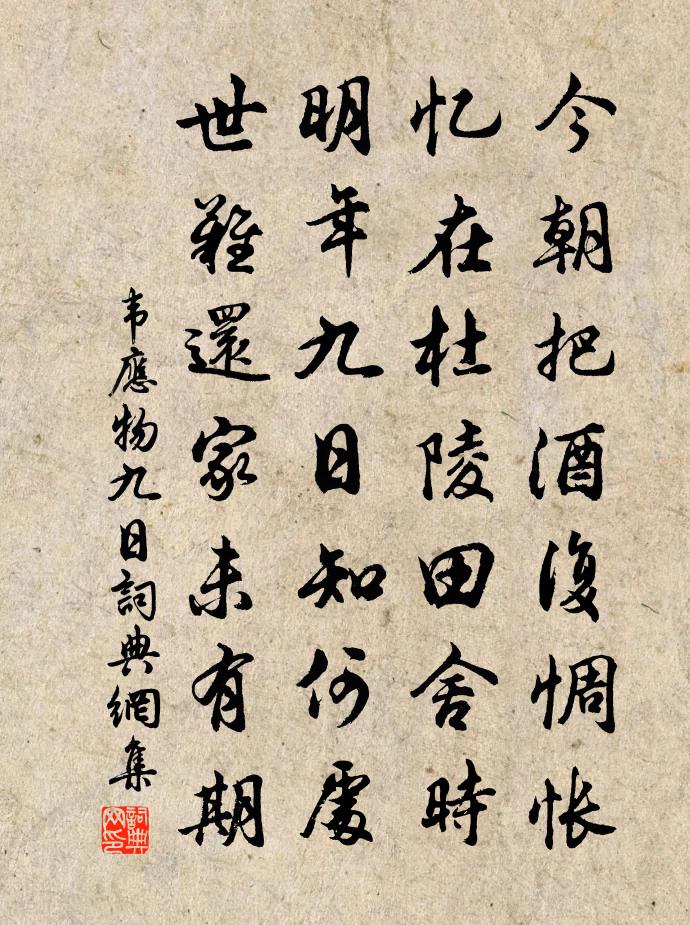 今朝把酒復惆怅
忆在杜陵田舍時
明年九日知何處
世難還家未有期
韦應物九日詞典網集
詞典网印